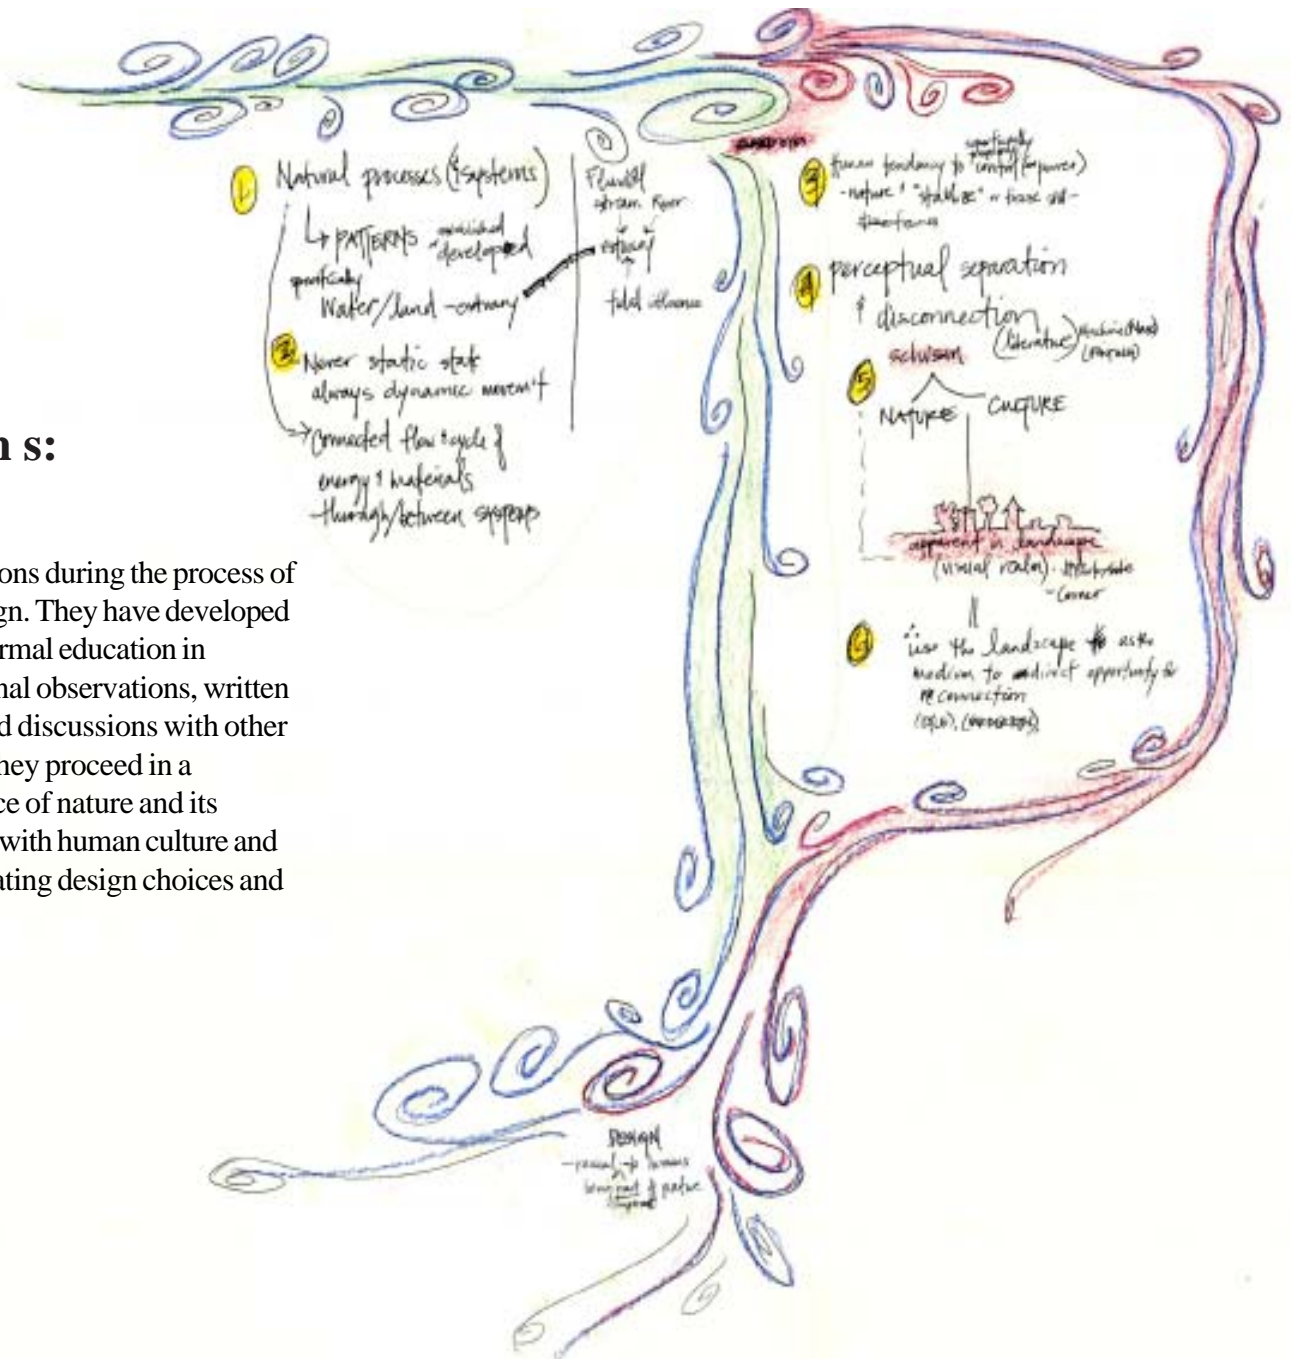 n s:
ons during the process of
gn. They have developed
rmal education in
nal observations, written
d discussions with other
hey proceed in a
ce of nature and its
with human culture and
ating design choices and
1 Natural processes (& systems)
PATTERNS established developed
specifically
Water/land - estuary
2 Never static state
always dynamic movem't
Connected flow & cycle of
energy & materials
through/between systems
Fluvial
stream River
estuary
tidal influence
3 human tendency to control
- nature & "stabilize"
4 perceptual separation
& disconnection
(literature)
schism
5
NATURE CULTURE
apparent in landscape
(visual realm)
- Corner
6 ∴ use the landscape as the
medium to direct opportunity for
reconnection
DESIGN
part of nature